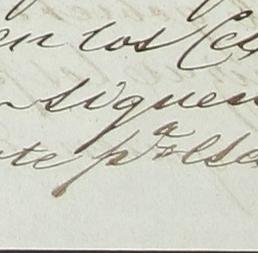 en los Ce
siguen
te pª else